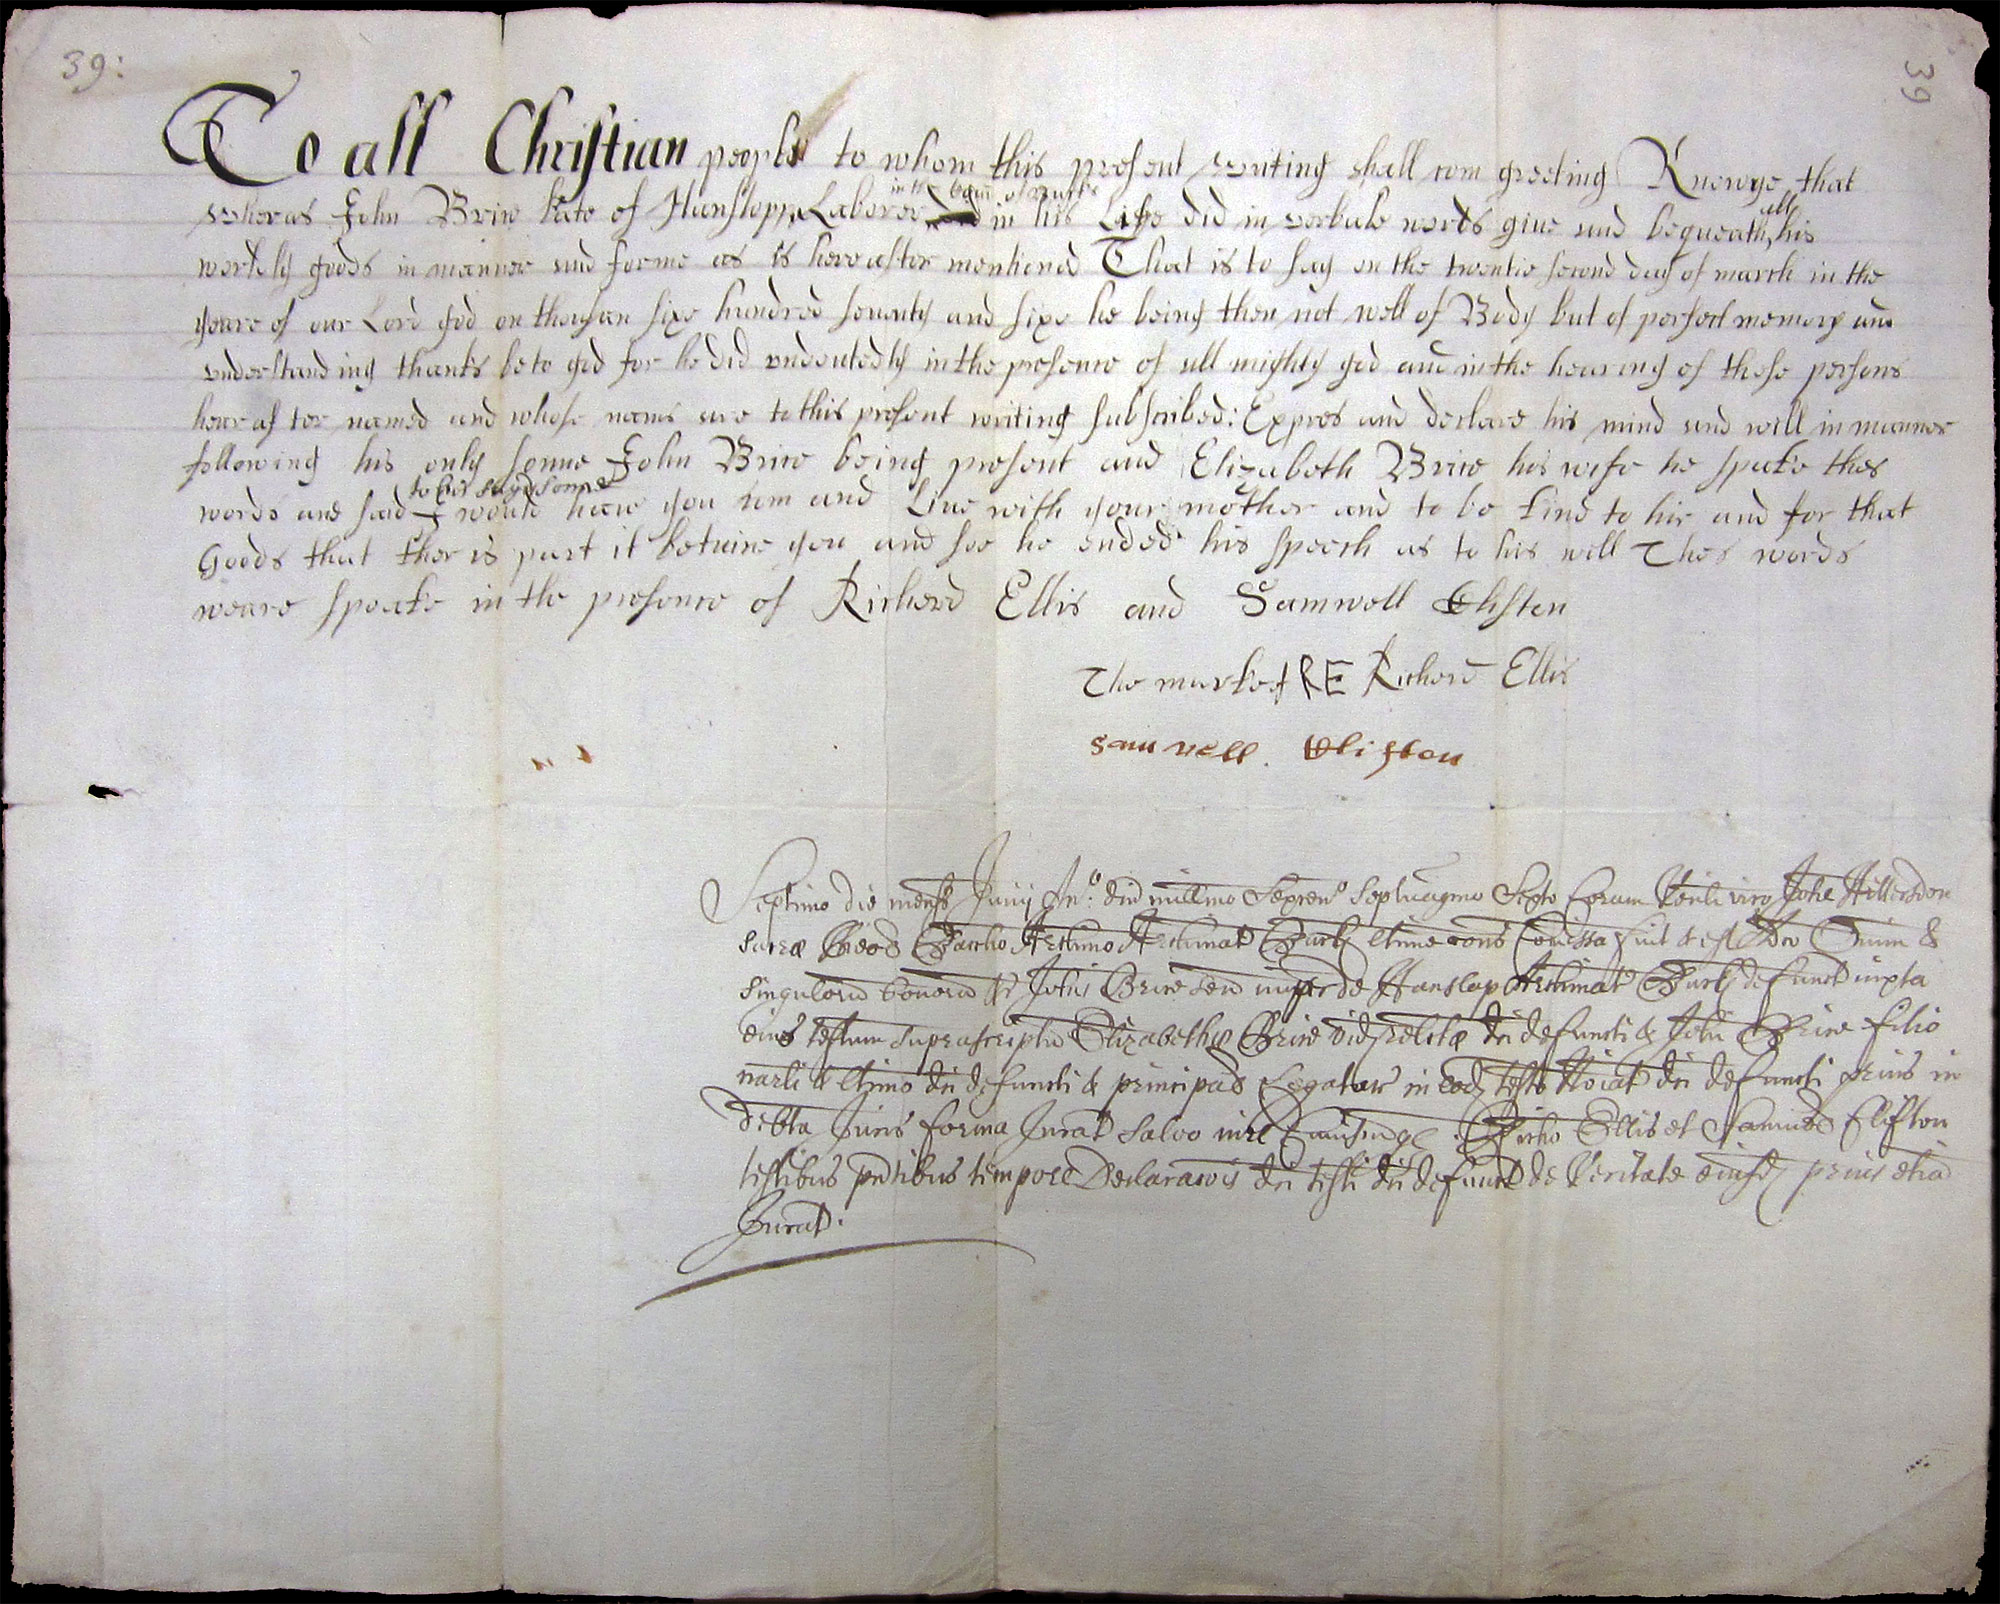 39:
39
To all Christian people to whom this present writing shall com greeting Knowye that
in the Coun of Bucks
wheras John Brice late of Hanslopp Laborer in his Life did in verbale words give and bequeath all his
worldly goods in manner and forme as is hereafter mentioned That is to say on the twentie second day of march in the
yeare of our Lord god on thousan sixe hundred seventy and sixe he being then not well of Body but of perfect memory and
understanding thanks be to god for he did undoutedly in the presence of all mighty god and in the hearing of these persons
hearafter named and whose nams are to this present writing subscribed: Expres and declare his mind and will in manner
following his only sonne John Brice being present and Elizabeth Brice his wife he spake thes
to his sayd sonne
words and said I would have you com and Live with your mother and to be kind to hir and for that
Goods that ther is part it betwixe you and soe he ended his speech as to his will Thes words
weare speake in the presence of Richerd Ellis and Samwell Clifton
The marke of RE Richerd Ellis
samvell. Clifton
Septimo die mens Junij An°: dni millmo Sexcen° septuagmo Sexto Coram viro Johe Hillersdon
sacrae Archinat Buck fuit & est &
singuloru bonoru Johis Brice sen nuper de Hanslap Archinat Buck defunct iuxta
eius testum suprascriptu Elizabethae Brice vid relictae dci defuncti & Johi Brice filio
narli & ltimo dci defuncti & principal Legatar in eod testo noiat dci defuncti prius in
debta Juris forma Jurat salvo iure Cuiuscunq Richo Ellis et Samuel Clifton
testibus pntibus tempore Declaracois dci testi dci defunct de Veritate eiusd prius etia
Jurat.